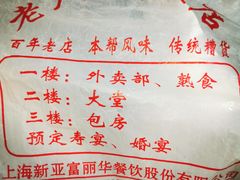 百年老店 本帮风味 传统糟货
一楼：外卖部、熟食
二楼：大堂
三楼：包房
预定寿宴、婚宴
上海新亚富丽华餐饮股份有限公司